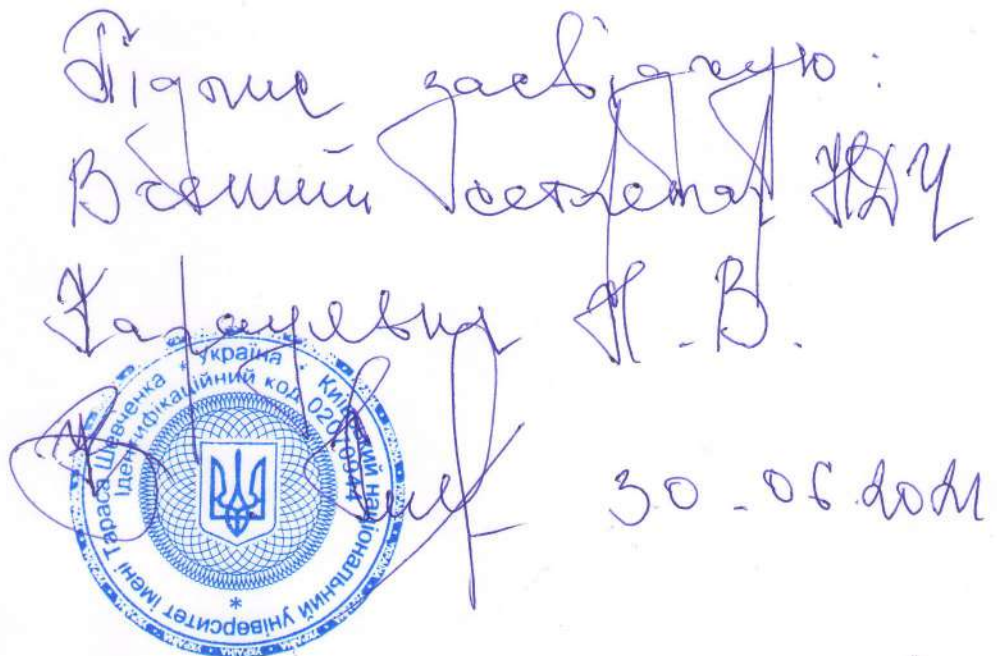 Підпис засвідчую:
Вчений секретар НДЧ
Караульна Н. В.
30.06.2021
Україна * Київський національний університет імені Тараса Шевченка *
Ідентифікаційний код 02070944